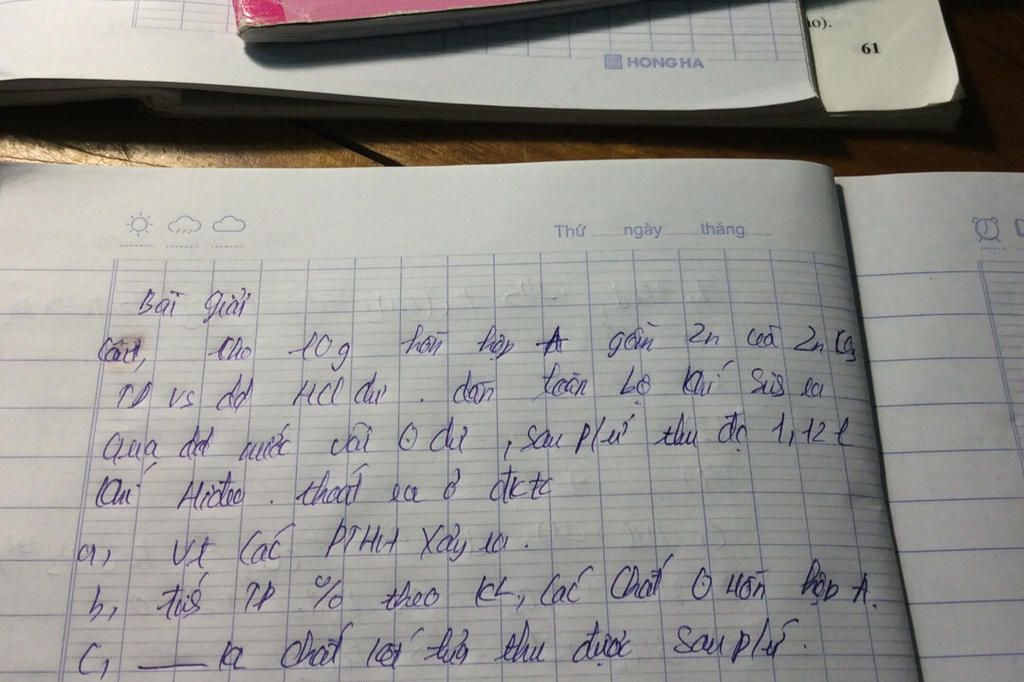 ao).
61
HONG HA
Thứ ngày tháng
Bài giải
Câu, Cho 10g hỗn hợp A gồm Zn và ZnCO3
TD vs dd HCl dư . dẫn toàn bộ khí Sis ra
Qua dd nước vôi dư , sau p/ứ thu đc 1,12 l
khí Hiđro . thoát ra ở đktc
a, Vt các PTHH xảy ra .
b, tís TP % theo KL, các chất hỗn hợp A.
C, KL chất kết tủa thu được sau p/ứ .